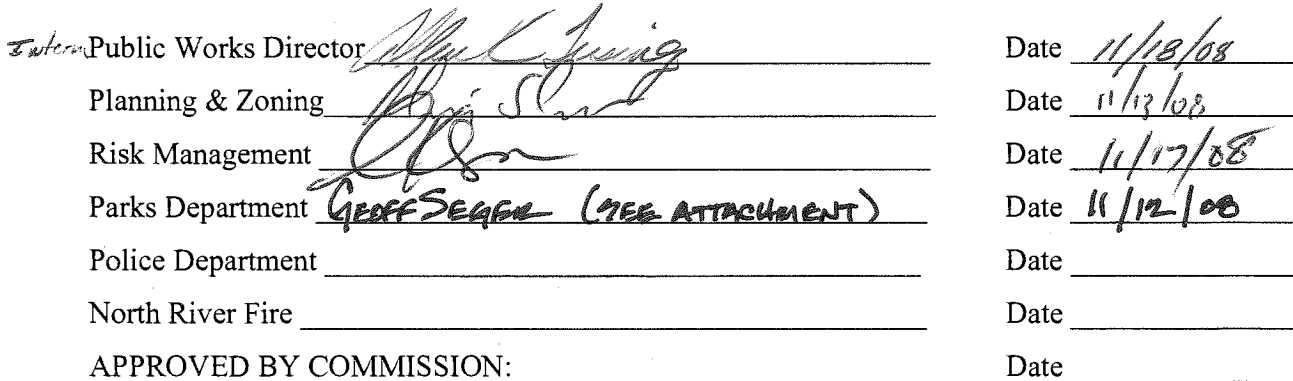 Interim Public Works Director Date 11/18/08
Planning & Zoning Date 11/13/08
Risk Management Date 11/17/08
Parks Department GEOFF SEGER (SEE ATTACHMENT) Date 11/12/08
Police Department Date
North River Fire Date
APPROVED BY COMMISSION: Date